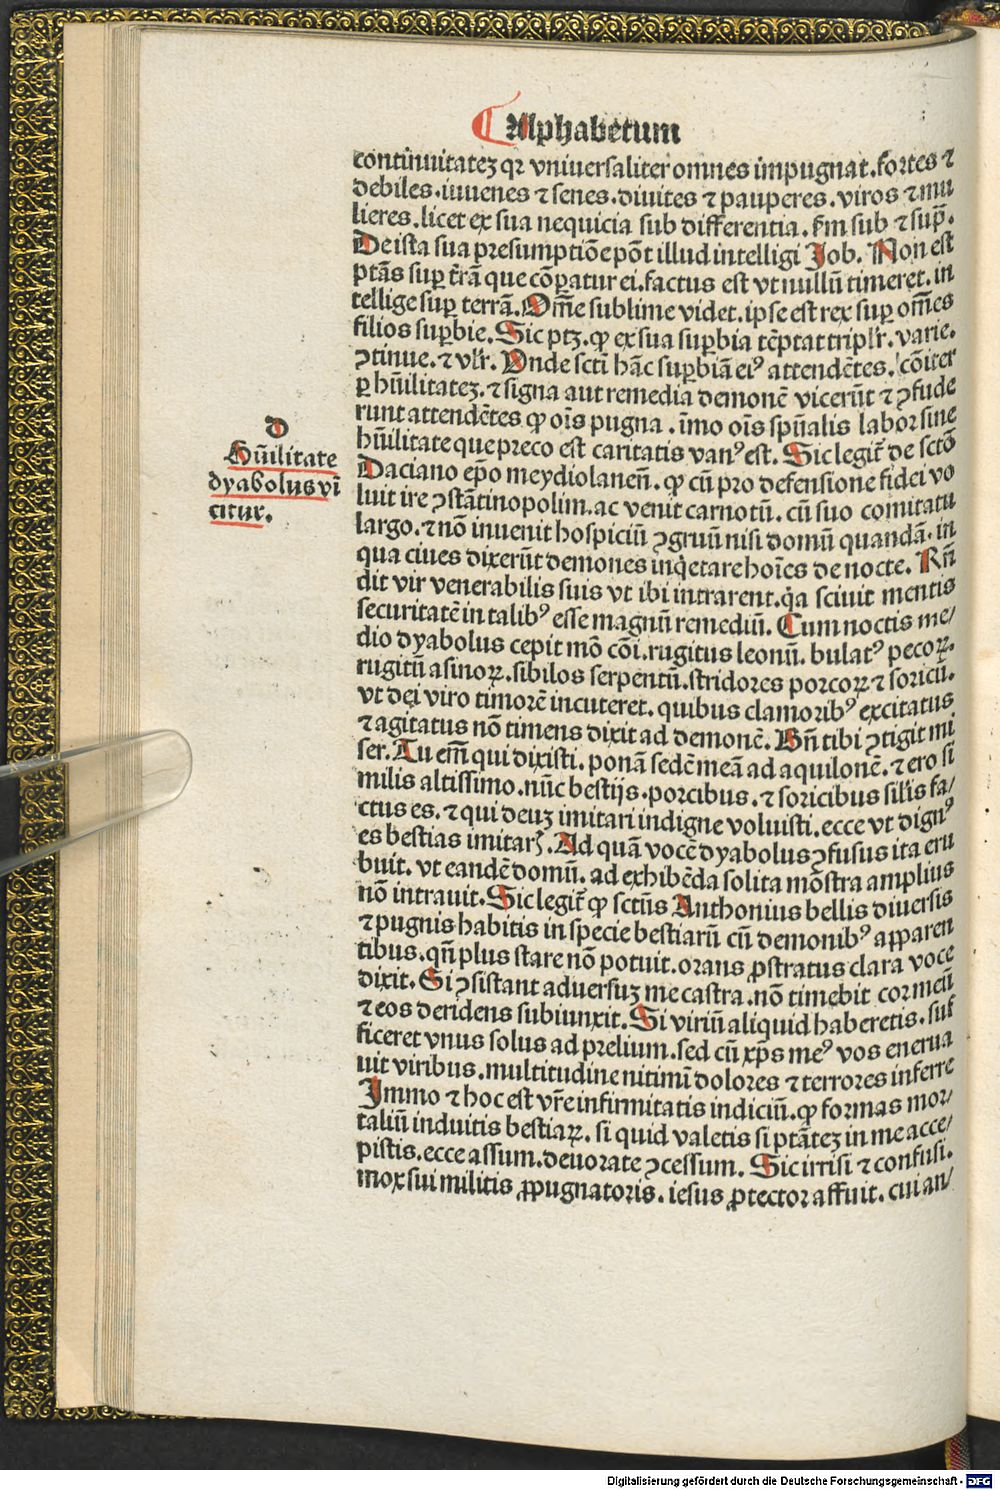 Alphabetum
continuitatez qr vniuersaliter omnes impugnat. fortes ⁊
debiles. iuuenes ⁊ senes. diuites ⁊ pauperes. viros ⁊ mu
lieres. licet ex sua nequicia sub differentia. scꝫm sub ⁊ sup̄.
De ista sua presumptiōe pōt illud intelligi Job. Non est
ptās suꝑ t̄rā que cōꝑatur ei. factus est vt nullū timeret. in
tellige suꝑ terrā. Om̄e sublime videt. ipse est rex suꝑ om̄es
filios suꝑbie. Sic ptꝫ. ꝙ ex sua suꝑbia tēptat tripl̄r. varie.
ꝯtinue. ⁊ vl̄r. Vnde sctī hāc suꝑbiā eiꝰ attendētes. cōiter
ꝑ hūilitatez. ⁊ signa aut remedia demonē vicerūt ⁊ ꝯfude
runt attendētes ꝙ oīs pugna. īmo oīs spūalis labor sine
hūilitate que preco est caritatis vanꝰ est. Sic legit̄ de sctō
Daciano ep̄o meydiolaneñ. ꝙ cū pro defensione fidei vo
luit ire ꝯstātinopolim. ac venit carnotū. cū suo comitatu
largo. ⁊ nō inuenit hospiciū ꝯgruū nisi domū quandā. in
qua ciues dixerūt demones inq̇etare hoīes de nocte. Rñ
dit vir venerabilis suis vt ibi intrarent. q̇a sciuit mentis
securitatē in talibꝰ esse magnū remediū. Cum noctis me/
dio dyabolus cepit mō cōi. rugitus leonū. bulatꝰ pecoꝝ.
rugitū asinoꝝ. sibilos serpentū. stridores porcoꝝ ⁊ soricū.
vt dei viro timorē incuteret. quibus clamoribꝰ excitatus
⁊ agitatus nō timens dixit ad demonē. Bñ tibi ꝯtigit mi
ser. Tu em̄ qui dixisti. ponā sedē meā ad aquilonē. ⁊ ero si
milis altissimo. nūc bestijs. porcibus. ⁊ soricibus sil̄is fa/
ctus es. ⁊ qui deuꝫ imitari indigne voluisti. ecce vt dignꝰ
es bestias imitarꝭ. Ad quā vocē dyabolus ꝯfusus ita eru
buit. vt eandē domū. ad exhibēda solita mōstra amplius
nō intrauit. Sic legit̄ ꝙ sctūs Anthonius bellis diuersis
⁊ pugnis habitis in specie bestiarū cū demonibꝰ apparen
tibus. qn̄ plus stare nō potuit. orans ꝓstratus clara voce
dixit. Si ꝯsistant aduersuꝫ me castra. nō timebit cor meū
⁊ eos deridens subiunxit. Si viriū aliquid haberetis. suf
ficeret vnus solus ad prelium. sed cū xp̄s meꝰ vos enerua
uit viribus. multitudine nitimī dolores ⁊ terrores inferre
Immo ⁊ hoc est vr̄e infirmitatis indiciū. ꝙ formas mor/
taliū induitis bestiaꝝ. si quid valetis si ptātez in me acce/
pistis. ecce assum. deuorate ꝯcessum. Sic irrisi ⁊ confusi.
mox sui militis ꝓpugnatoris. iesus ꝓtector affuit. cui an/
D
Hūilitate
dyabolus vī
citur.
Digitalisierung gefördert durch die Deutsche Forschungsgemeinschaft - DFG